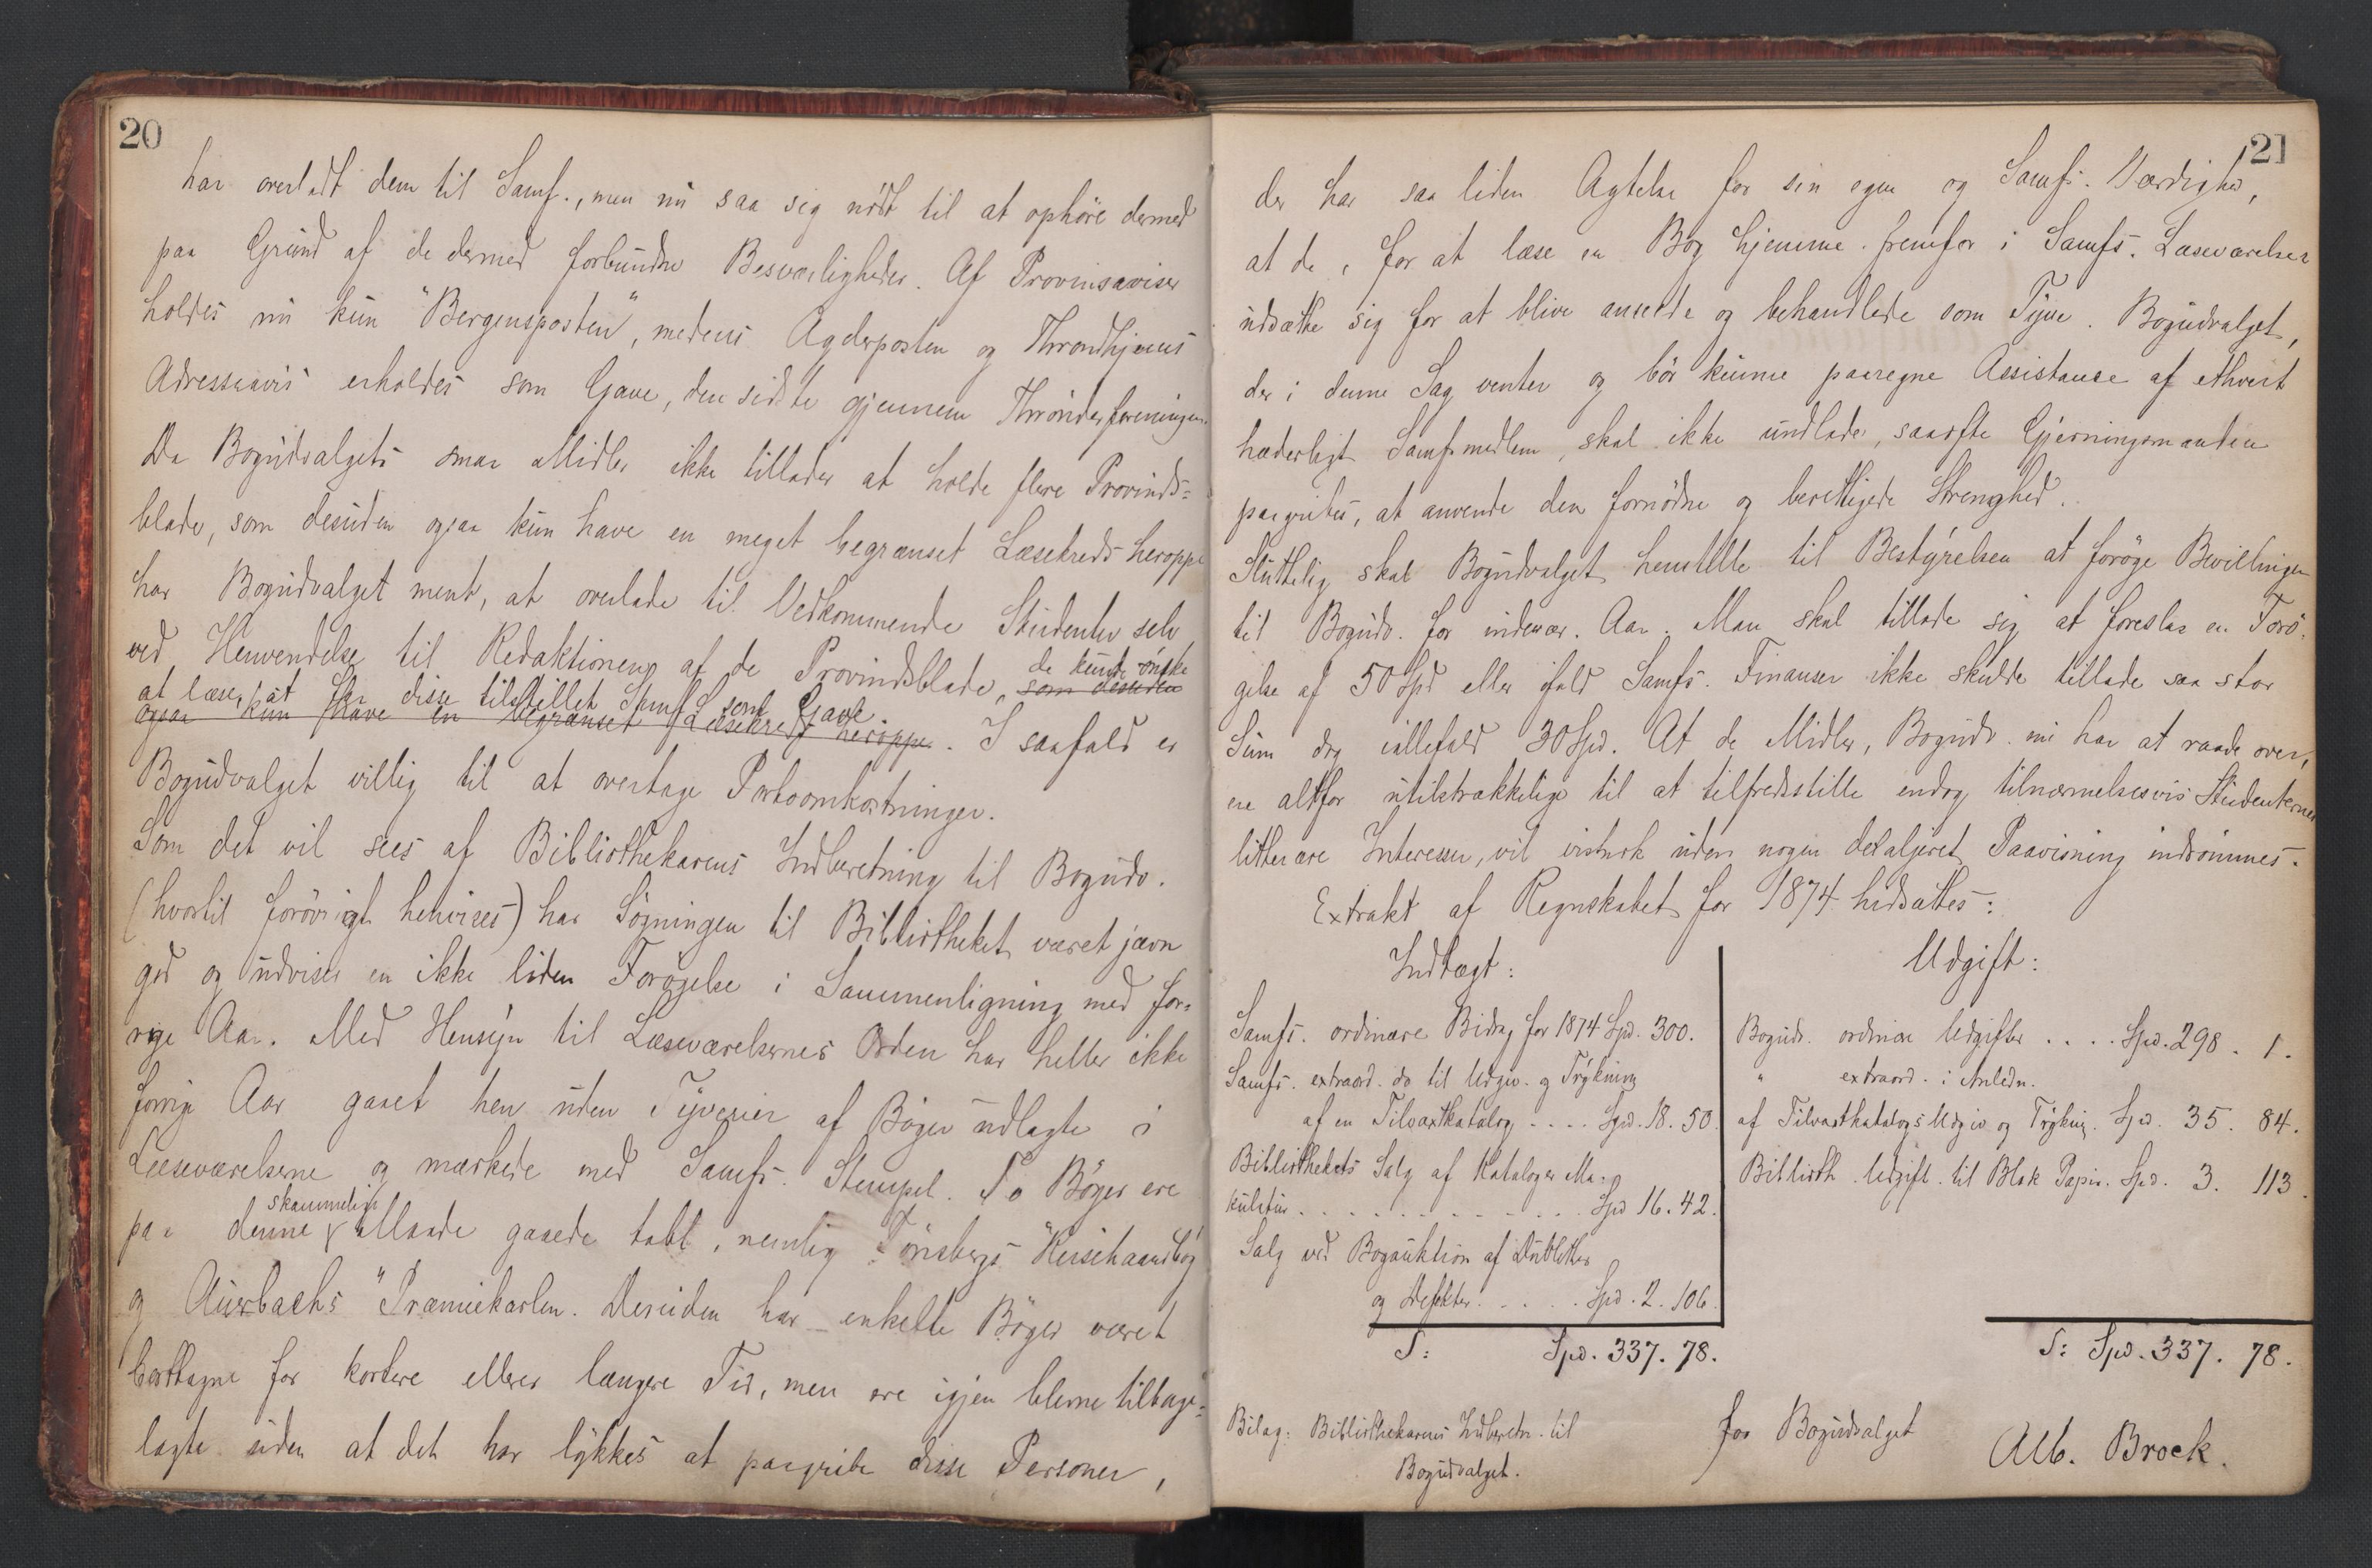 20
har overladt dem til Samf., men nu saa sig nödt til at ophöre dermed
paa Grund af de dermed forbundne Besværligheder. Af Provinsaviser
holdes nu kun "Bergensposten", medens Agderposten og Throndhjems
Adresseavis erholdes som Gave, den sidste gjennem Thrönderforeningen.
Da Bogudvalgets smaa Midler ikke tillader at holde flere Provinds=
blade, som desuden ogsaa kun have en meget begrænset Læsekreds heroppe
har Bogudvalget ment, at overlade til Vedkommende Studenter selv
ved Henvendelse til Redaktionen af de Provindsblade, de kunde önske
som desuden
at læse, at faa disse tilstillet Samf. som Gave.
ogsaa kun have en begrænset Læsekreds heroppe. I saafald er
Bogudvalget villig til at overtage Portoomkostninger.
Som det vil sees af Bibliothekarens Indberetning til Bogudv.
(hvortil forövrigt henvises) har Sögningen til Bibliotheket været jævn
god og udviser en ikke liden Forögelse i Sammenligning med for=
rige Aar. Med Hensyn til Læseværelsernes Orden har heller ikke
forrige Aar gaaet hen uden Tyverier af Böger udlagte i
Læseværelserne og mærkede med Samfs. Stempel. To Böger ere
skammelige
paa denne Maade gaaede tabt, nemlig Tönsbergs "Reisehaandbog"
og Auerbachs "Præmiekarlen. Desuden har enkelte Böger været
borttagne for kortere eller længere Tid, men ere igjen blevne tilbage=
lagte uden at det har lykkes at paagribe disse Personer,
21
der har saa liden Agtelse for sin egen og Samfs. Værdighed,
at de, for at læse en Bog hjemme fremfor i Samfs. Læseværelser
udsætte sig for at blive anseede og behandlede som Tyve. Bogudvalget,
der i denne Sag venter og bör kunne paaregne Assistance af ethvert
hæderligt Samfsmedlem, skal ikke undlade, saaofte Gjerningsmanden
paagribes, at anvende den fornödne og berettigede Strenghed.
Sluttelig skal Bogudvalget henstille til Bestyrelsen at foröge Bevillingen
til Bogudv. for indevær. Aar. Man skal tillade sig at foreslaa en Forö-
gelse af 50 Spd eller ifald Samfs. Finanser ikke skulde tillade saa stor
Sum dog iallefald 30 Spd. At de Midler, Bogudv. nu har at raade over,
ere altfor utilstrækkelige til at tilfredsstille endog tilnærmelsesvis Studenternes
litterære Interesser, vil vistnok uden nogen detaljeret Paavisning indrömmes.
Extrakt af Regnskabet for 1874 hidsættes:
Indtægt:
Samfs. ordinære Bidrag for 1874 Spd. 300.
Samfs. extraord. do til Udgiv. og Trykning
af en Tilvæxtkatalog .... Spd. 18. 50.
Bibliothekets Salg af Kataloger Ma-
kulatur ............ Spd 16. 42.
Salg ved Bogauktion af Dubletter
og Defekter ..... Spd. 2. 106.
S: Spd. 337. 78.
Udgift:
Bogudv. ordinær Udgifter .... Spd. 298. 1.
" extraord. i Anledn.
af Tilvæxtkatalogs Udgiv. og Trykning. Spd. 35. 84.
Biblioth. Udgift til Blæk Papir. Spd. 3. 113.
S: Spd. 337. 78.
Bilag: Bibliothekarens Indberetn. til
Bogudvalget.
for Bogudvalget
Alb. Brock.